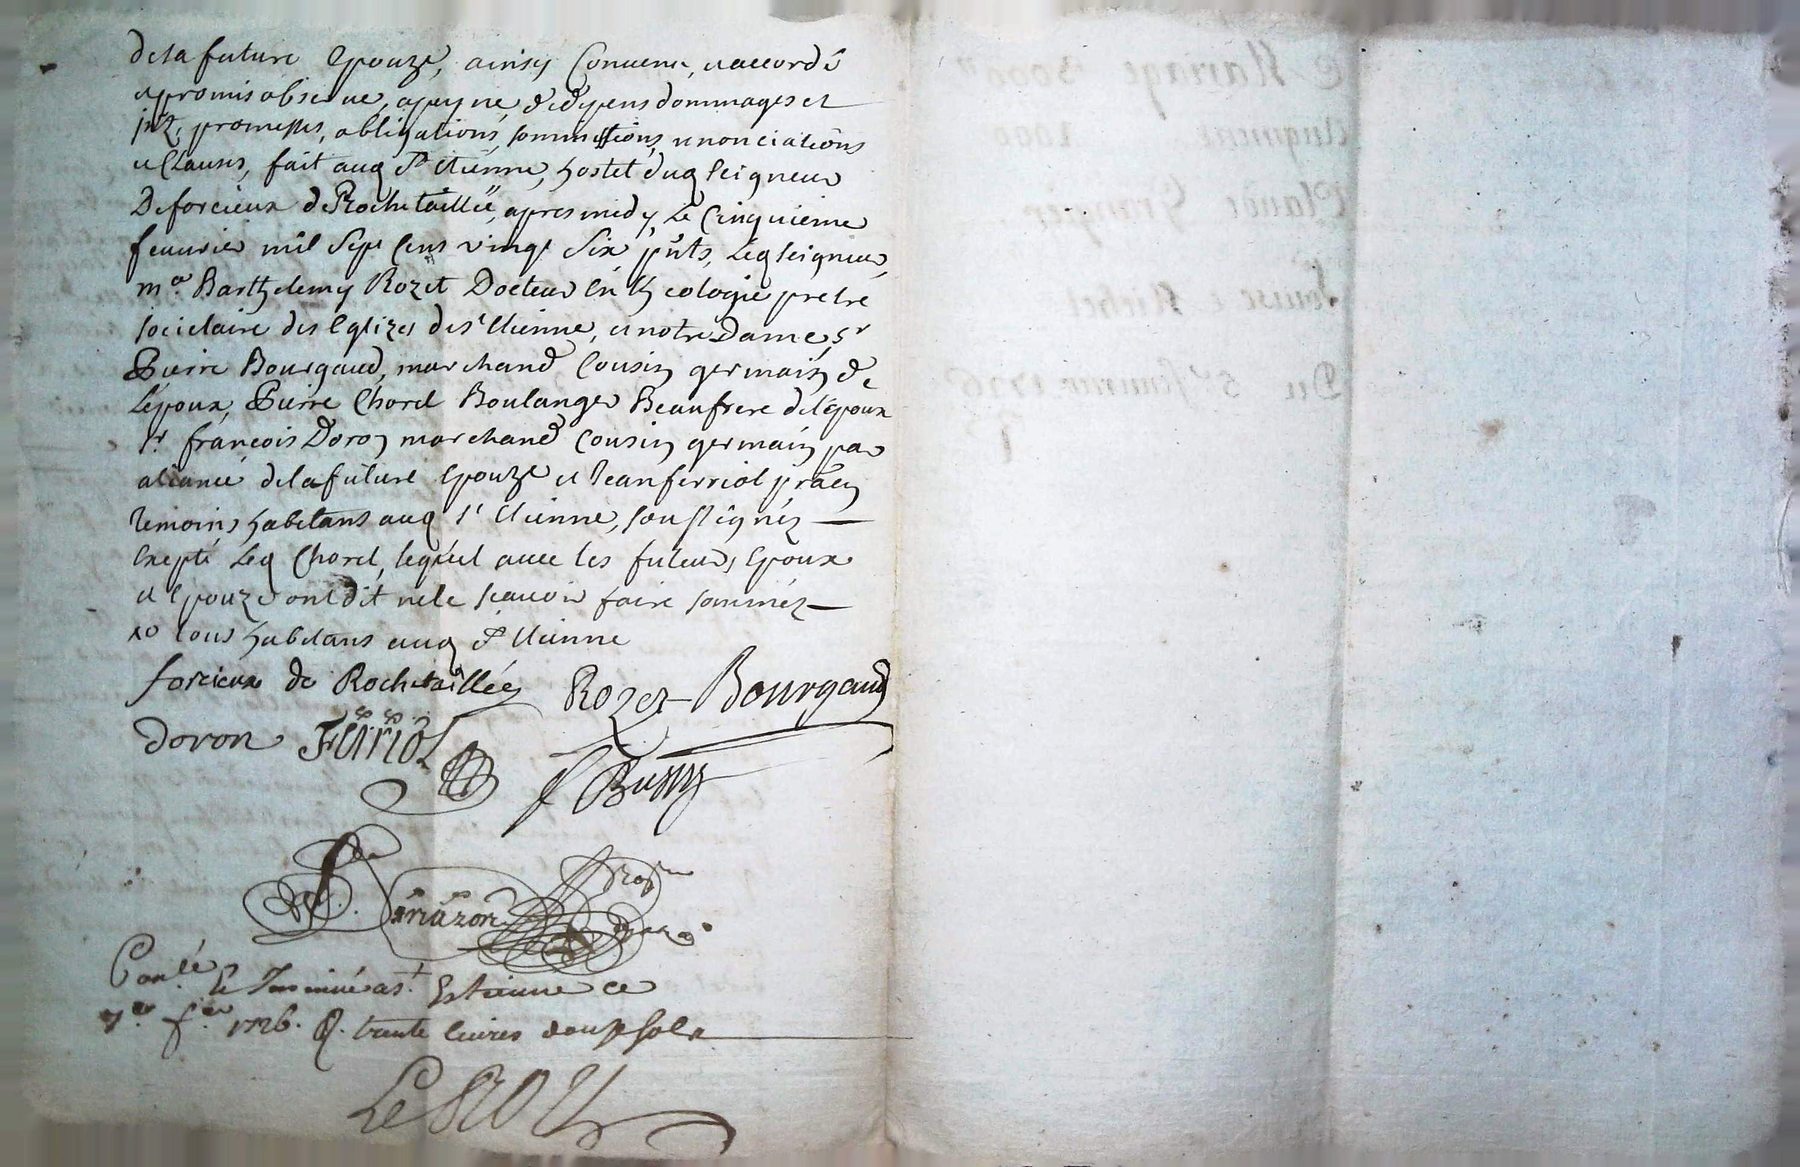 dela future Epouze, ainsy Convenu, et accordé
et promis observer, a peyne, de despens dommages et
jntz, promesses, obligations, sommissions, renonciations
et Clauses, fait aud St Etienne, hostel dud seigneur
De forcieux de Rochetaillée, apres midy, Le Cinquieme
feuvrier mil Sept Cens vingt Six, pnts, Led seigneur,
me Barthelemy Rozet Docteur En theologie pretre
societaire des Eglizes de st Etienne, et notre Dame, sr
Pierre Bourgaud, marchand Cousin germain de
L'epoux, Pierre Chorel Boulanger Beaufrere de l'epoux
sr françois Doron marchand Cousin germain par
aliance dela future Epouze et Jean ferriol praen
temoins habitans aud st Etienne, soussignez
Excepté Led Chorel, lequel avec les futurs Epoux
et Epouze ont dit ne le sçavoir faire sommez
xo tous habitans aud St Etienne
forcieux de Rochetaillée Rozet Bourgaud
doron Ferriol
Bussy
Conlé et Insinué a st Estienne ce
7e fer 1726. R. trente livres douze sols
Le Roy
Mariage 3000ll
Augment 1000
Claude Granjer
Louise Richel
Du 5e feuvrier 1726